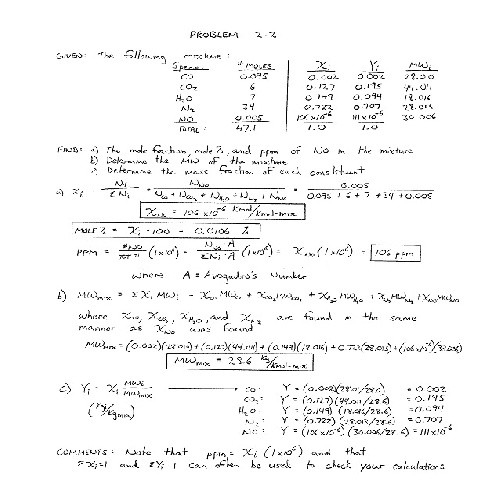 PROBLEM 2-2
GIVEN: The following mixture:
Species # moles X Yi MWi
CO 0.095 0.002 0.002 28.00
CO2 6 0.127 0.195 44.01
H2O 7 0.149 0.094 18.016
N2 34 0.722 0.707 28.013
NO 0.005 106x10-6 111x10-6 30.006
TOTAL: 47.1 1.0 1.0
FIND: a) The mole fraction, mole %, and ppm of NO in the mixture
b) Determine the MW of the mixture
c) Determine the mass fraction of each constituent
a) Xi = Ni / ΣNi = NNO / NCO + NCO2 + NH2O + NN2 + NNO = 0.005 / 0.095 + 6 + 7 + 34 + 0.005
XNO = 106 x10-6 kmol/kmol-mix
MOLE % = Xi · 100 = 0.0106 %
PPM = (1x106) = NNO·A / ΣNi·A (1x106) = XNO (1x106) = 106 ppm
where A = Avogadro's Number
b) MWmix = ΣXi MWi = XCO MWCO + XCO2 MWCO2 + XH2O MWH2O + XN2 MWN2 + XNO MWNO
where XCO, XCO2, XH2O, and XN2 are found in the same
manner as XNO was found
MWmix = (0.002)(28.01) + (0.127)(44.01) + (0.149)(18.016) + 0.722(28.013) + (106x10-6)(30.006)
MWmix = 28.6 kg/kmol-mix
c) Yi = Xi MWi / MWmix CO: Y = (0.002)(28.01/28.6) = 0.002
(kg/kgmix) CO2: Y = (0.127)(44.01/28.6) = 0.195
H2O: Y = (0.149)(18.016/28.6) = 0.094
N2: Y = (0.722)(28.013/28.6) = 0.707
NO: Y = (106x10-6)(30.006/28.6) = 111x10-6
COMMENTS: Note that ppmi = Xi (1x106) and that
ΣXi=1 and ΣYi=1 can often be used to check your calculations